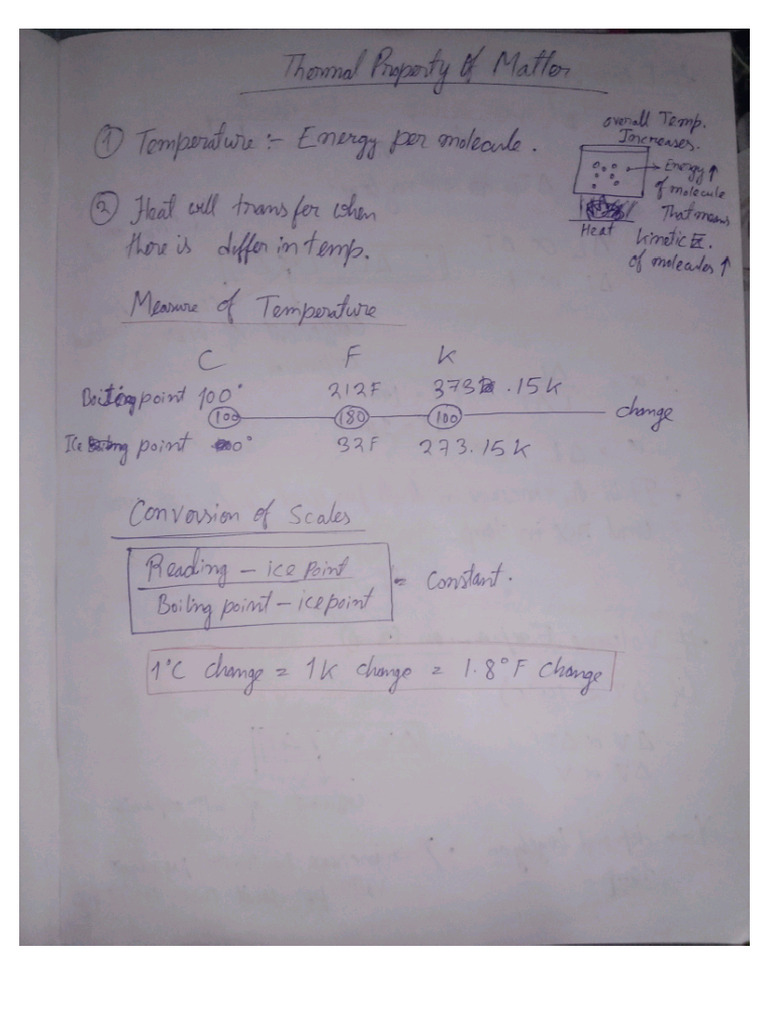 Thermal Property of Matter
① Temperature :- Energy per molecule.
② Heat will transfer when
there is differ in temp.
overall Temp.
Increases.
→ Energy ↑
of molecule
That means
kinetic E.
of molecules ↑
Heat
Measure of Temperature
C F K
Boiling point 100° 212F 373.15K
100 180 100 change
Ice point 0° 32F 273.15K
Conversion of Scales
Reading - ice point
Boiling point - ice point
= Constant.
1°C change = 1K change = 1.8°F Change